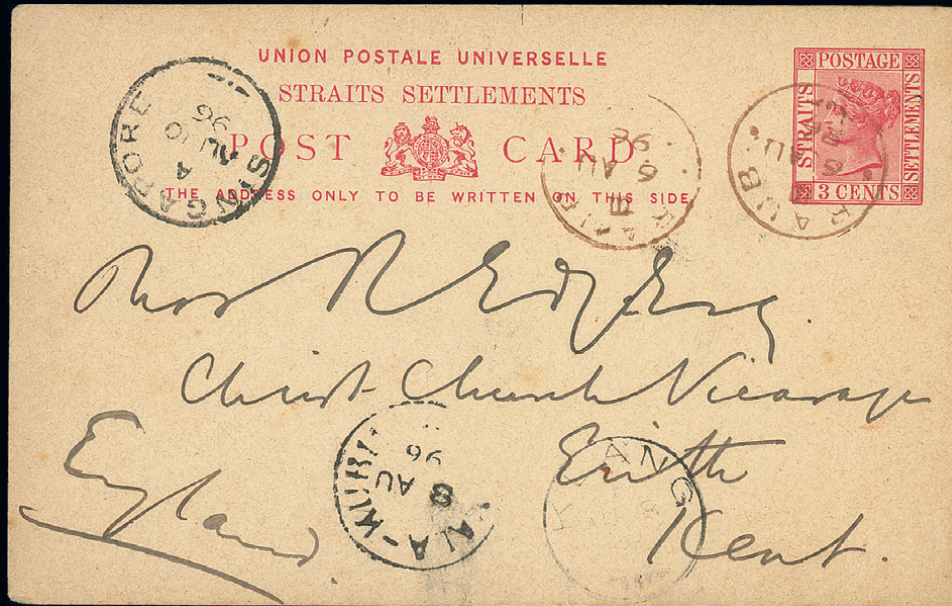 UNION POSTALE UNIVERSELLE
STRAITS SETTLEMENTS
POST CARD
THE ADDRESS ONLY TO BE WRITTEN ON THIS SIDE.
POSTAGE
STRAITS
SETTLEMENTS
3 CENTS
SINGAPORE
A
AU 10
96
RAUB
6 AU
96
RAUB
Thos R Edg Esq.
Christ Church Vicarage
Erith
Kent.
England.
ALA-KUB
8 AU
96
K ANG